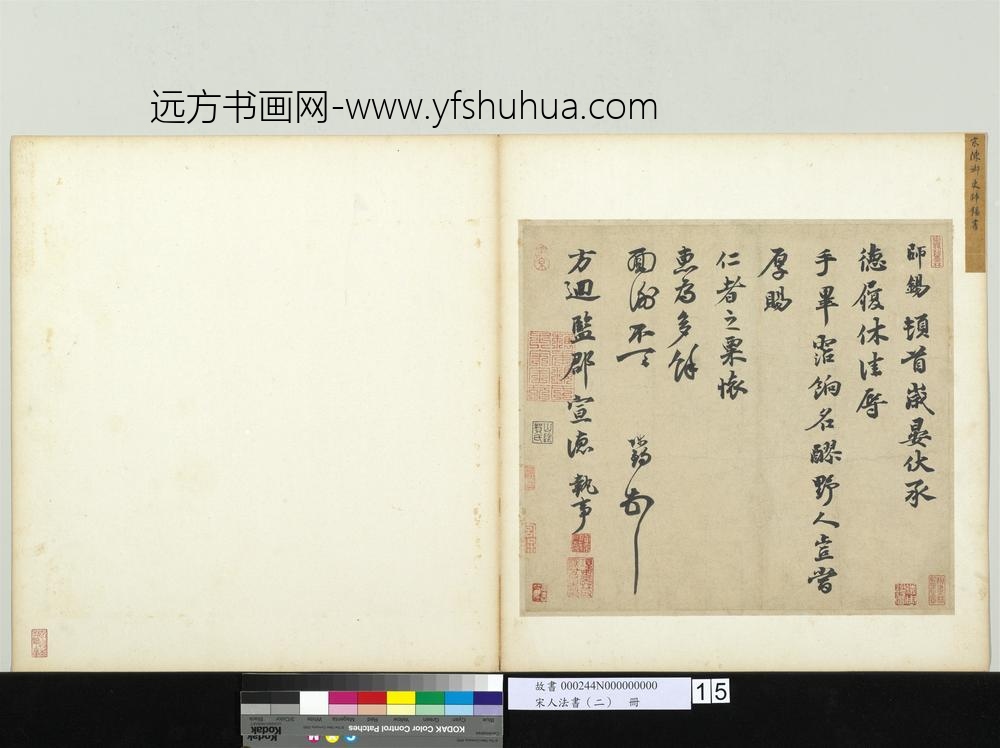 远方书画网-www.yfshuhua.com
宋陳御史師錫書
師錫頓首歲晏伏承
德履休佳辱
手畢寵餉名醪野人豈嘗
厚賜
仁者之粟懷
惠為多餘
面謝不一一
師錫 頓首
方迴監郡宣德 執事
故書 000244N000000000
宋人法書（二） 冊
15
KODAK Color Control Patches
Blue
Cyan
Green
Yellow
Red
Magenta
White
3/Color
Black